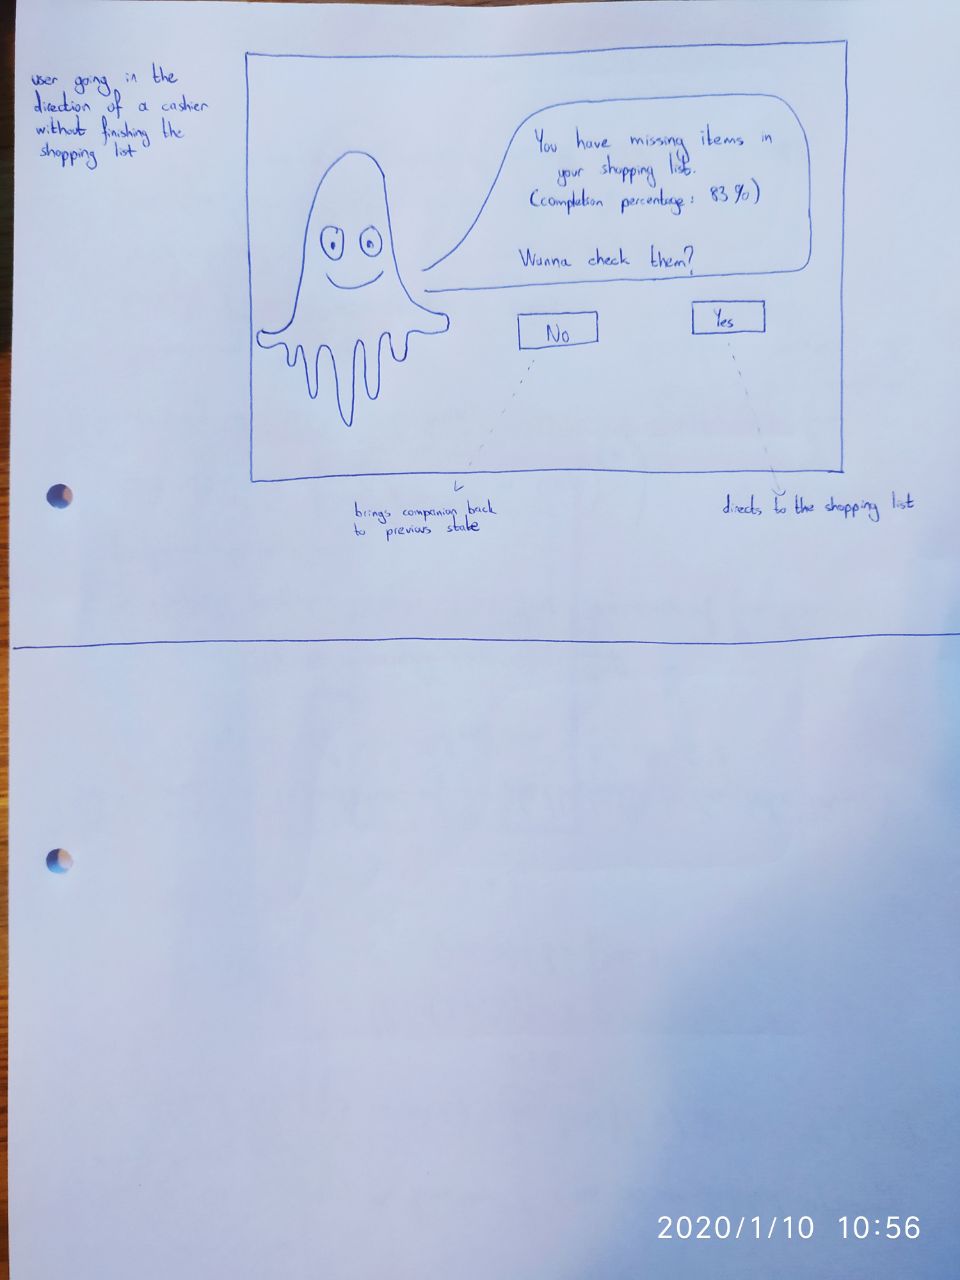 user going in the
direction of a cashier
without finishing the
shopping list
You have missing items in
your shopping list.
(completion percentage: 83%)
Wanna check them?
No
Yes
brings companion back
to previous state
directs to the shopping list
2020/1/10 10:56